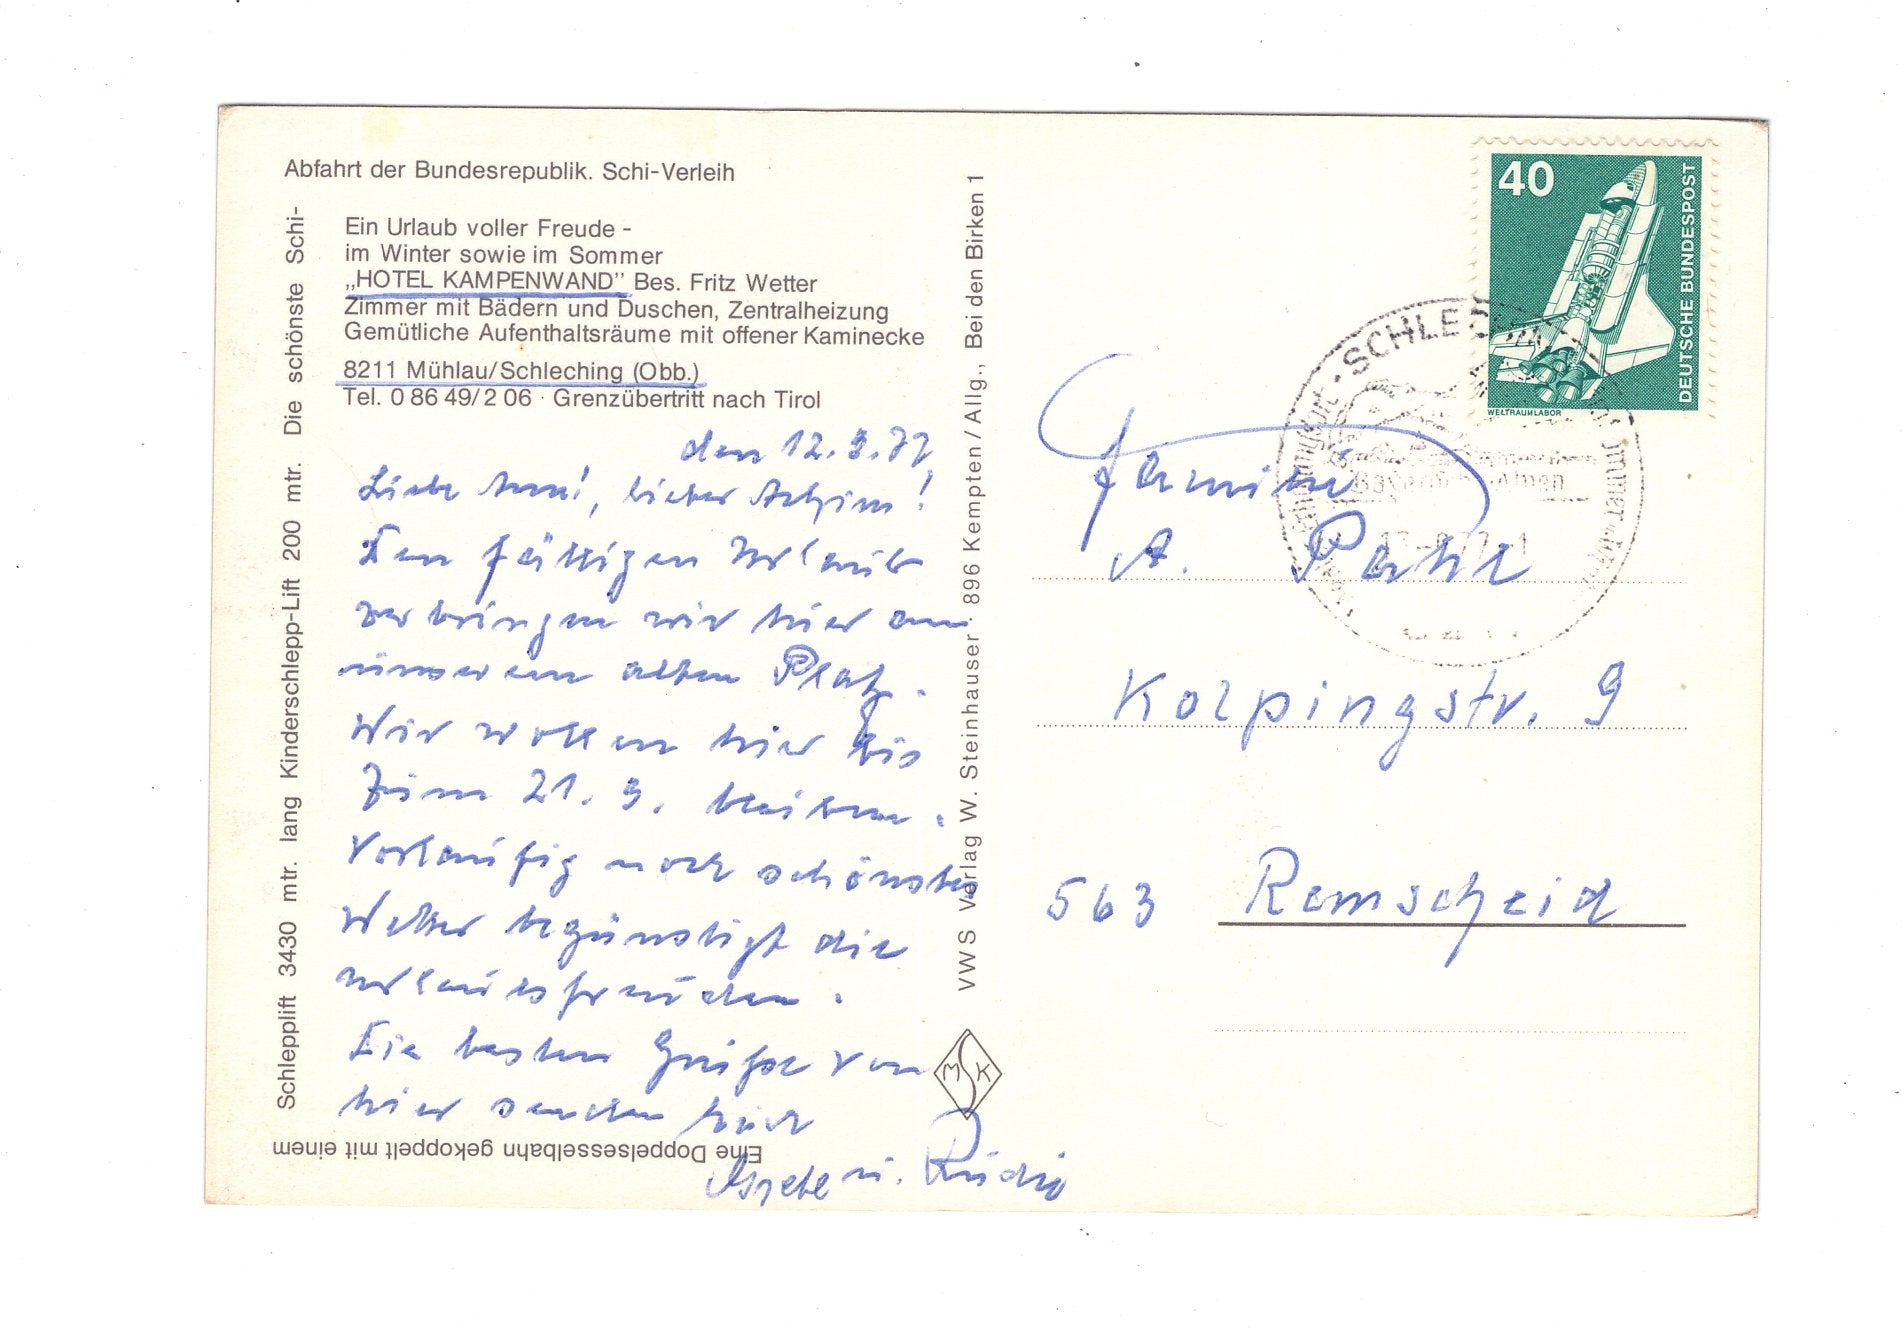 Abfahrt der Bundesrepublik. Schi-Verleih
Ein Urlaub voller Freude -
im Winter sowie im Sommer
„HOTEL KAMPENWAND" Bes. Fritz Wetter
Zimmer mit Bädern und Duschen, Zentralheizung
Gemütliche Aufenthaltsräume mit offener Kaminecke
8211 Mühlau/Schleching (Obb.)
Tel. 0 86 49/2 06 · Grenzübertritt nach Tirol
Eine Doppelsesselbahn gekoppelt mit einem
Schlepplift 3430 mtr. lang Kinderschlepp-Lift 200 mtr. Die schönste Schi-
den 12.9.77
Liebe Anni, lieber Achim!
Den fälligen Urlaub
verbringen wir hier an
unserem alten Platz.
Wir wollen hier bis
zum 21. 9. bleiben.
Vorläufig noch schönstes
Wetter begünstigt die
Urlaubsfreuden.
Die besten Grüße von
hier senden Euch
u.
VWS Verlag W. Steinhauser 896 Kempten / Allg., Bei den Birken 1
MSK
40
DEUTSCHE BUNDESPOST
WELTRAUMLABOR
SCHLECHING
Familie
A. Pahl
Kolpingstr. 9
563 Remscheid